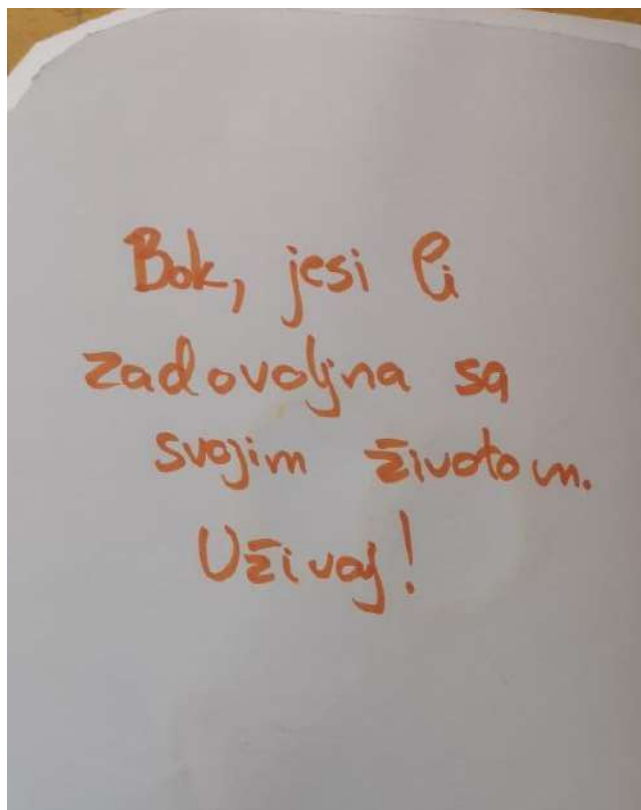 Bok, jesi li
zadovoljna sa
svojim životom.
Uživaj!